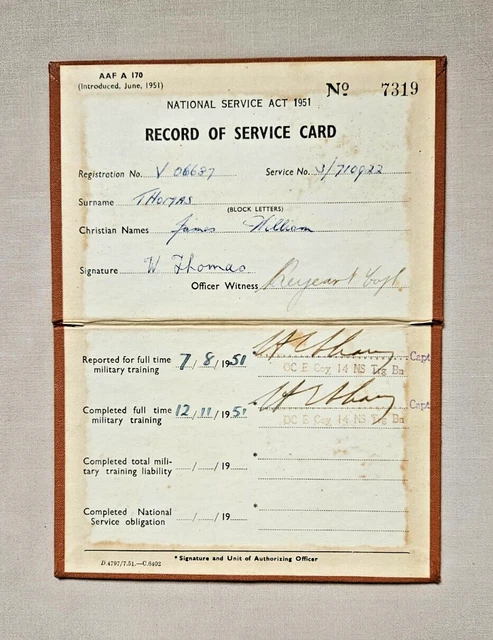 AAF A 170
(Introduced, June, 1951)
No 7319
NATIONAL SERVICE ACT 1951
RECORD OF SERVICE CARD
Registration No. V 06687 Service No. 3/710922
Surname THOMAS
(BLOCK LETTERS)
Christian Names James William
Signature W Thomas
Officer Witness
Reported for full time military training 7/8/1951 Capt
OC E Coy 14 NS Trg Bn
Completed full time military training 12/11/1951 Capt
OC E Coy 14 NS Trg Bn
Completed total mili-
tary training liability / /19 *
Completed National
Service obligation / /19 *
*Signature and Unit of Authorizing Officer
D.4797/7.51.—C.6492